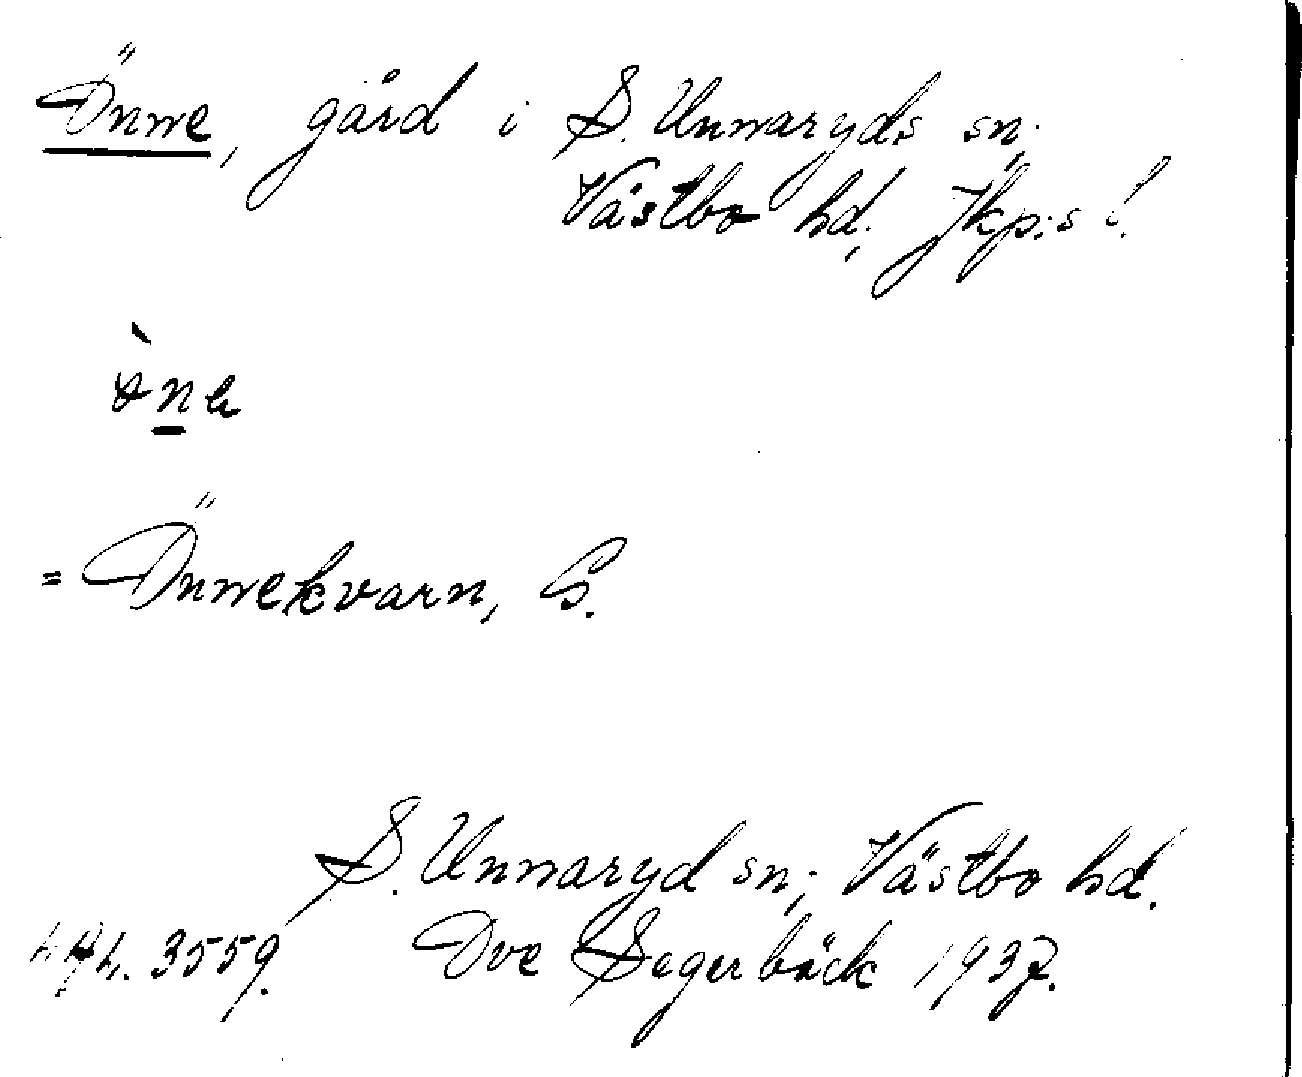 Önne, gård i S. Unnaryds sn;
Västbo hd; Jkp:s l.
= Önnekvarn, S.
S. Unnaryd sn; Västbo hd.
3559. Ove Segerbäck 1937.